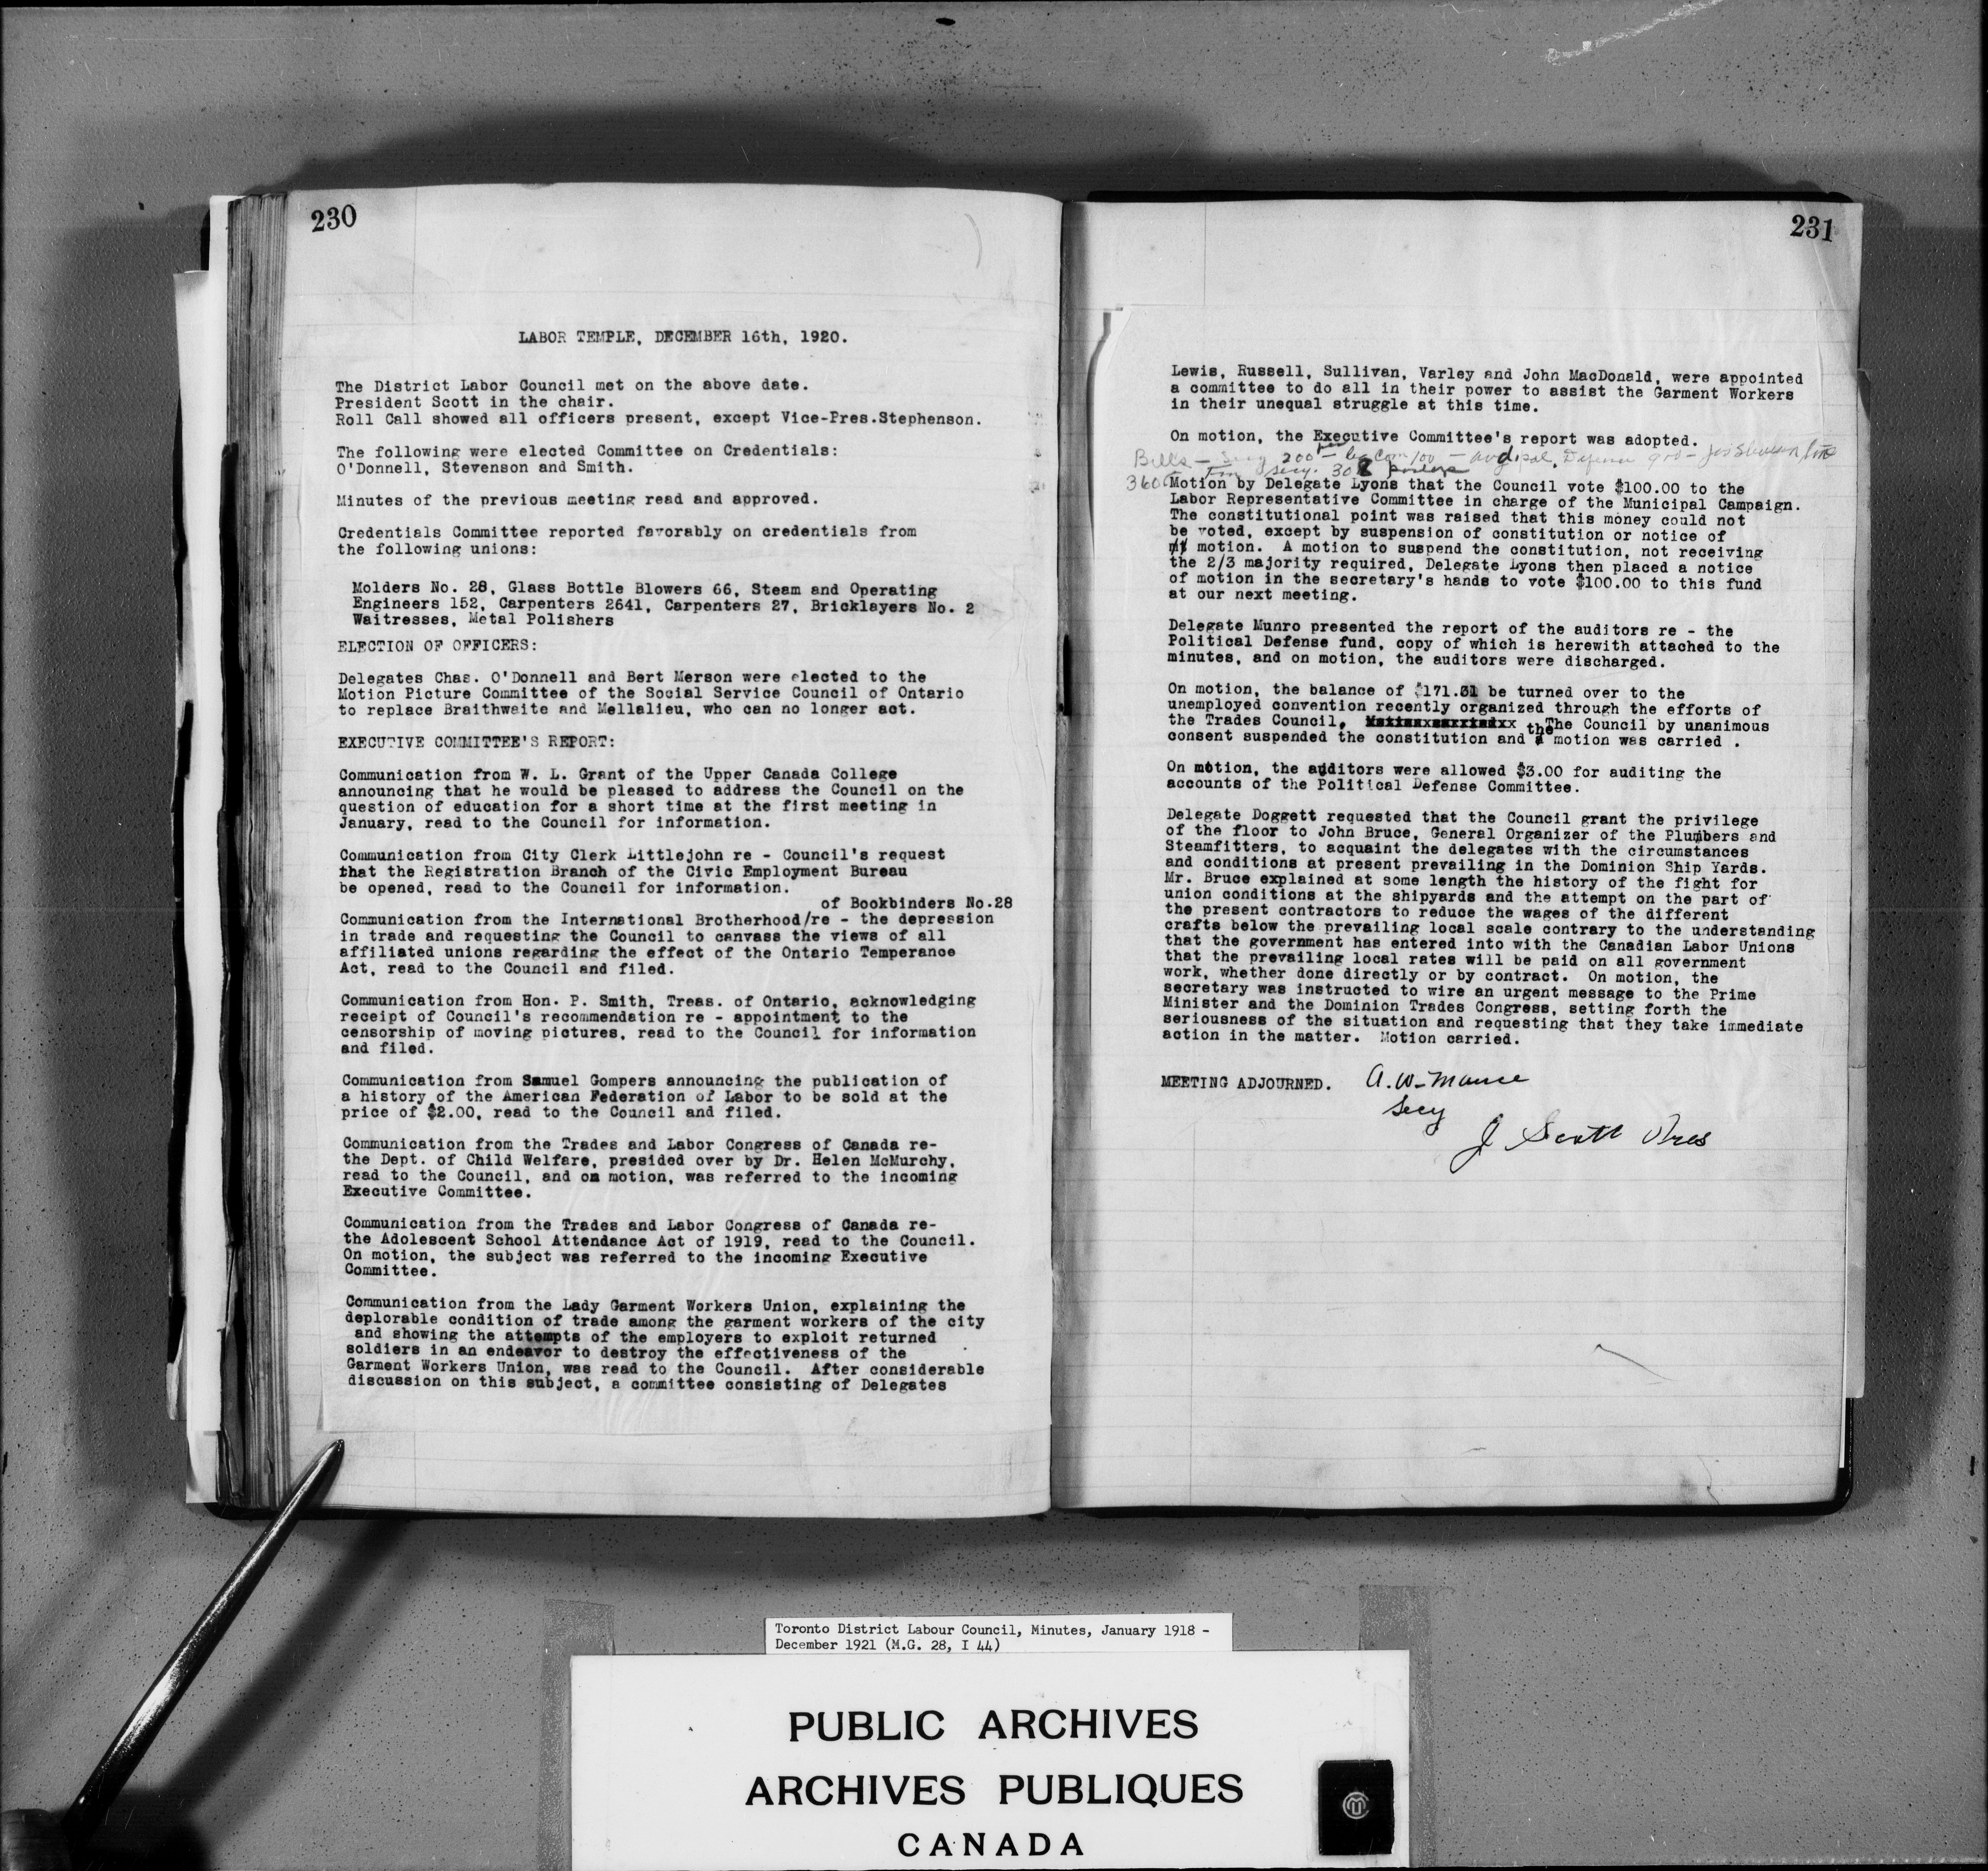 230
LABOR TEMPLE, DECEMBER 16th, 1920.
The District Labor Council met on the above date.
President Scott in the chair.
Roll Call showed all officers present, except Vice-Pres.Stephenson.
The following were elected Committee on Credentials:
O'Donnell, Stevenson and Smith.
Minutes of the previous meeting read and approved.
Credentials Committee reported favorably on credentials from
the following unions:
Molders No. 28, Glass Bottle Blowers 66, Steam and Operating
Engineers 152, Carpenters 2641, Carpenters 27, Bricklayers No. 2
Waitresses, Metal Polishers
ELECTION OF OFFICERS:
Delegates Chas. O'Donnell and Bert Merson were elected to the
Motion Picture Committee of the Social Service Council of Ontario
to replace Braithwaite and Mellalieu, who can no longer act.
EXECUTIVE COMMITTEE'S REPORT:
Communication from W. L. Grant of the Upper Canada College
announcing that he would be pleased to address the Council on the
question of education for a short time at the first meeting in
January, read to the Council for information.
Communication from City Clerk Littlejohn re - Council's request
that the Registration Branch of the Civic Employment Bureau
be opened, read to the Council for information.
of Bookbinders No.28
Communication from the International Brotherhood/re - the depression
in trade and requesting the Council to canvass the views of all
affiliated unions regarding the effect of the Ontario Temperance
Act, read to the Council and filed.
Communication from Hon. P. Smith, Treas. of Ontario, acknowledging
receipt of Council's recommendation re - appointment to the
censorship of moving pictures, read to the Council for information
and filed.
Communication from Samuel Gompers announcing the publication of
a history of the American Federation of Labor to be sold at the
price of $2.00, read to the Council and filed.
Communication from the Trades and Labor Congress of Canada re-
the Dept. of Child Welfare, presided over by Dr. Helen McMurchy,
read to the Council, and on motion, was referred to the incoming
Executive Committee.
Communication from the Trades and Labor Congress of Canada re-
the Adolescent School Attendance Act of 1919, read to the Council.
On motion, the subject was referred to the incoming Executive
Committee.
Communication from the Lady Garment Workers Union, explaining the
deplorable condition of trade among the garment workers of the city
and showing the attempts of the employers to exploit returned
soldiers in an endeavor to destroy the effectiveness of the
Garment Workers Union, was read to the Council.  After considerable
discussion on this subject, a committee consisting of Delegates
231
Lewis, Russell, Sullivan, Varley and John MacDonald, were appointed
a committee to do all in their power to assist the Garment Workers
in their unequal struggle at this time.
On motion, the Executive Committee's report was adopted.
Bills - Secy 200 - Com 100 - Defense
Fin Secy. 30
360
Motion by Delegate Lyons that the Council vote $100.00 to the
Labor Representative Committee in charge of the Municipal Campaign.
The constitutional point was raised that this money could not
be voted, except by suspension of constitution or notice of
motion.  A motion to suspend the constitution, not receiving
the 2/3 majority required, Delegate Lyons then placed a notice
of motion in the secretary's hands to vote $100.00 to this fund
at our next meeting.
Delegate Munro presented the report of the auditors re - the
Political Defense fund, copy of which is herewith attached to the
minutes, and on motion, the auditors were discharged.
On motion, the balance of $171.31 be turned over to the
unemployed convention recently organized through the efforts of
the Trades Council. The Council by unanimous
consent suspended the constitution and the motion was carried .
On motion, the auditors were allowed $3.00 for auditing the
accounts of the Political Defense Committee.
Delegate Doggett requested that the Council grant the privilege
of the floor to John Bruce, General Organizer of the Plumbers and
Steamfitters, to acquaint the delegates with the circumstances
and conditions at present prevailing in the Dominion Ship Yards.
Mr. Bruce explained at some length the history of the fight for
union conditions at the shipyards and the attempt on the part of
the present contractors to reduce the wages of the different
crafts below the prevailing local scale contrary to the understanding
that the government has entered into with the Canadian Labor Unions
that the prevailing local rates will be paid on all government
work, whether done directly or by contract.  On motion, the
secretary was instructed to wire an urgent message to the Prime
Minister and the Dominion Trades Congress, setting forth the
seriousness of the situation and requesting that they take immediate
action in the matter.  Motion carried.
MEETING ADJOURNED. A. W. Mance
Secy
J Scott Pres
Toronto District Labour Council, Minutes, January 1918 -
December 1921 (M.G. 28, I 44)
PUBLIC ARCHIVES
ARCHIVES PUBLIQUES
CANADA